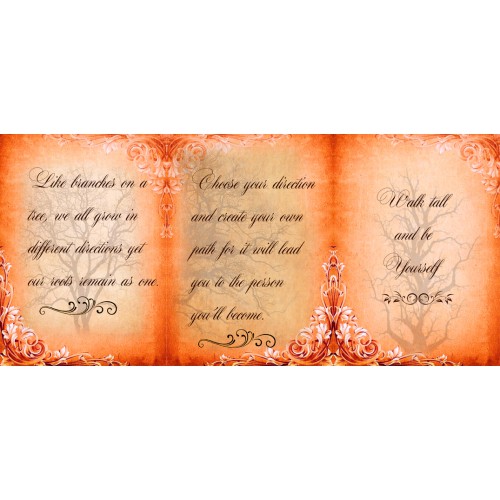 Like branches on a
tree, we all grow in
different directions yet
our roots remain as one.
Choose your direction
and create your own
path for it will lead
you to the person
you'll become.
Walk tall
and be
Yourself